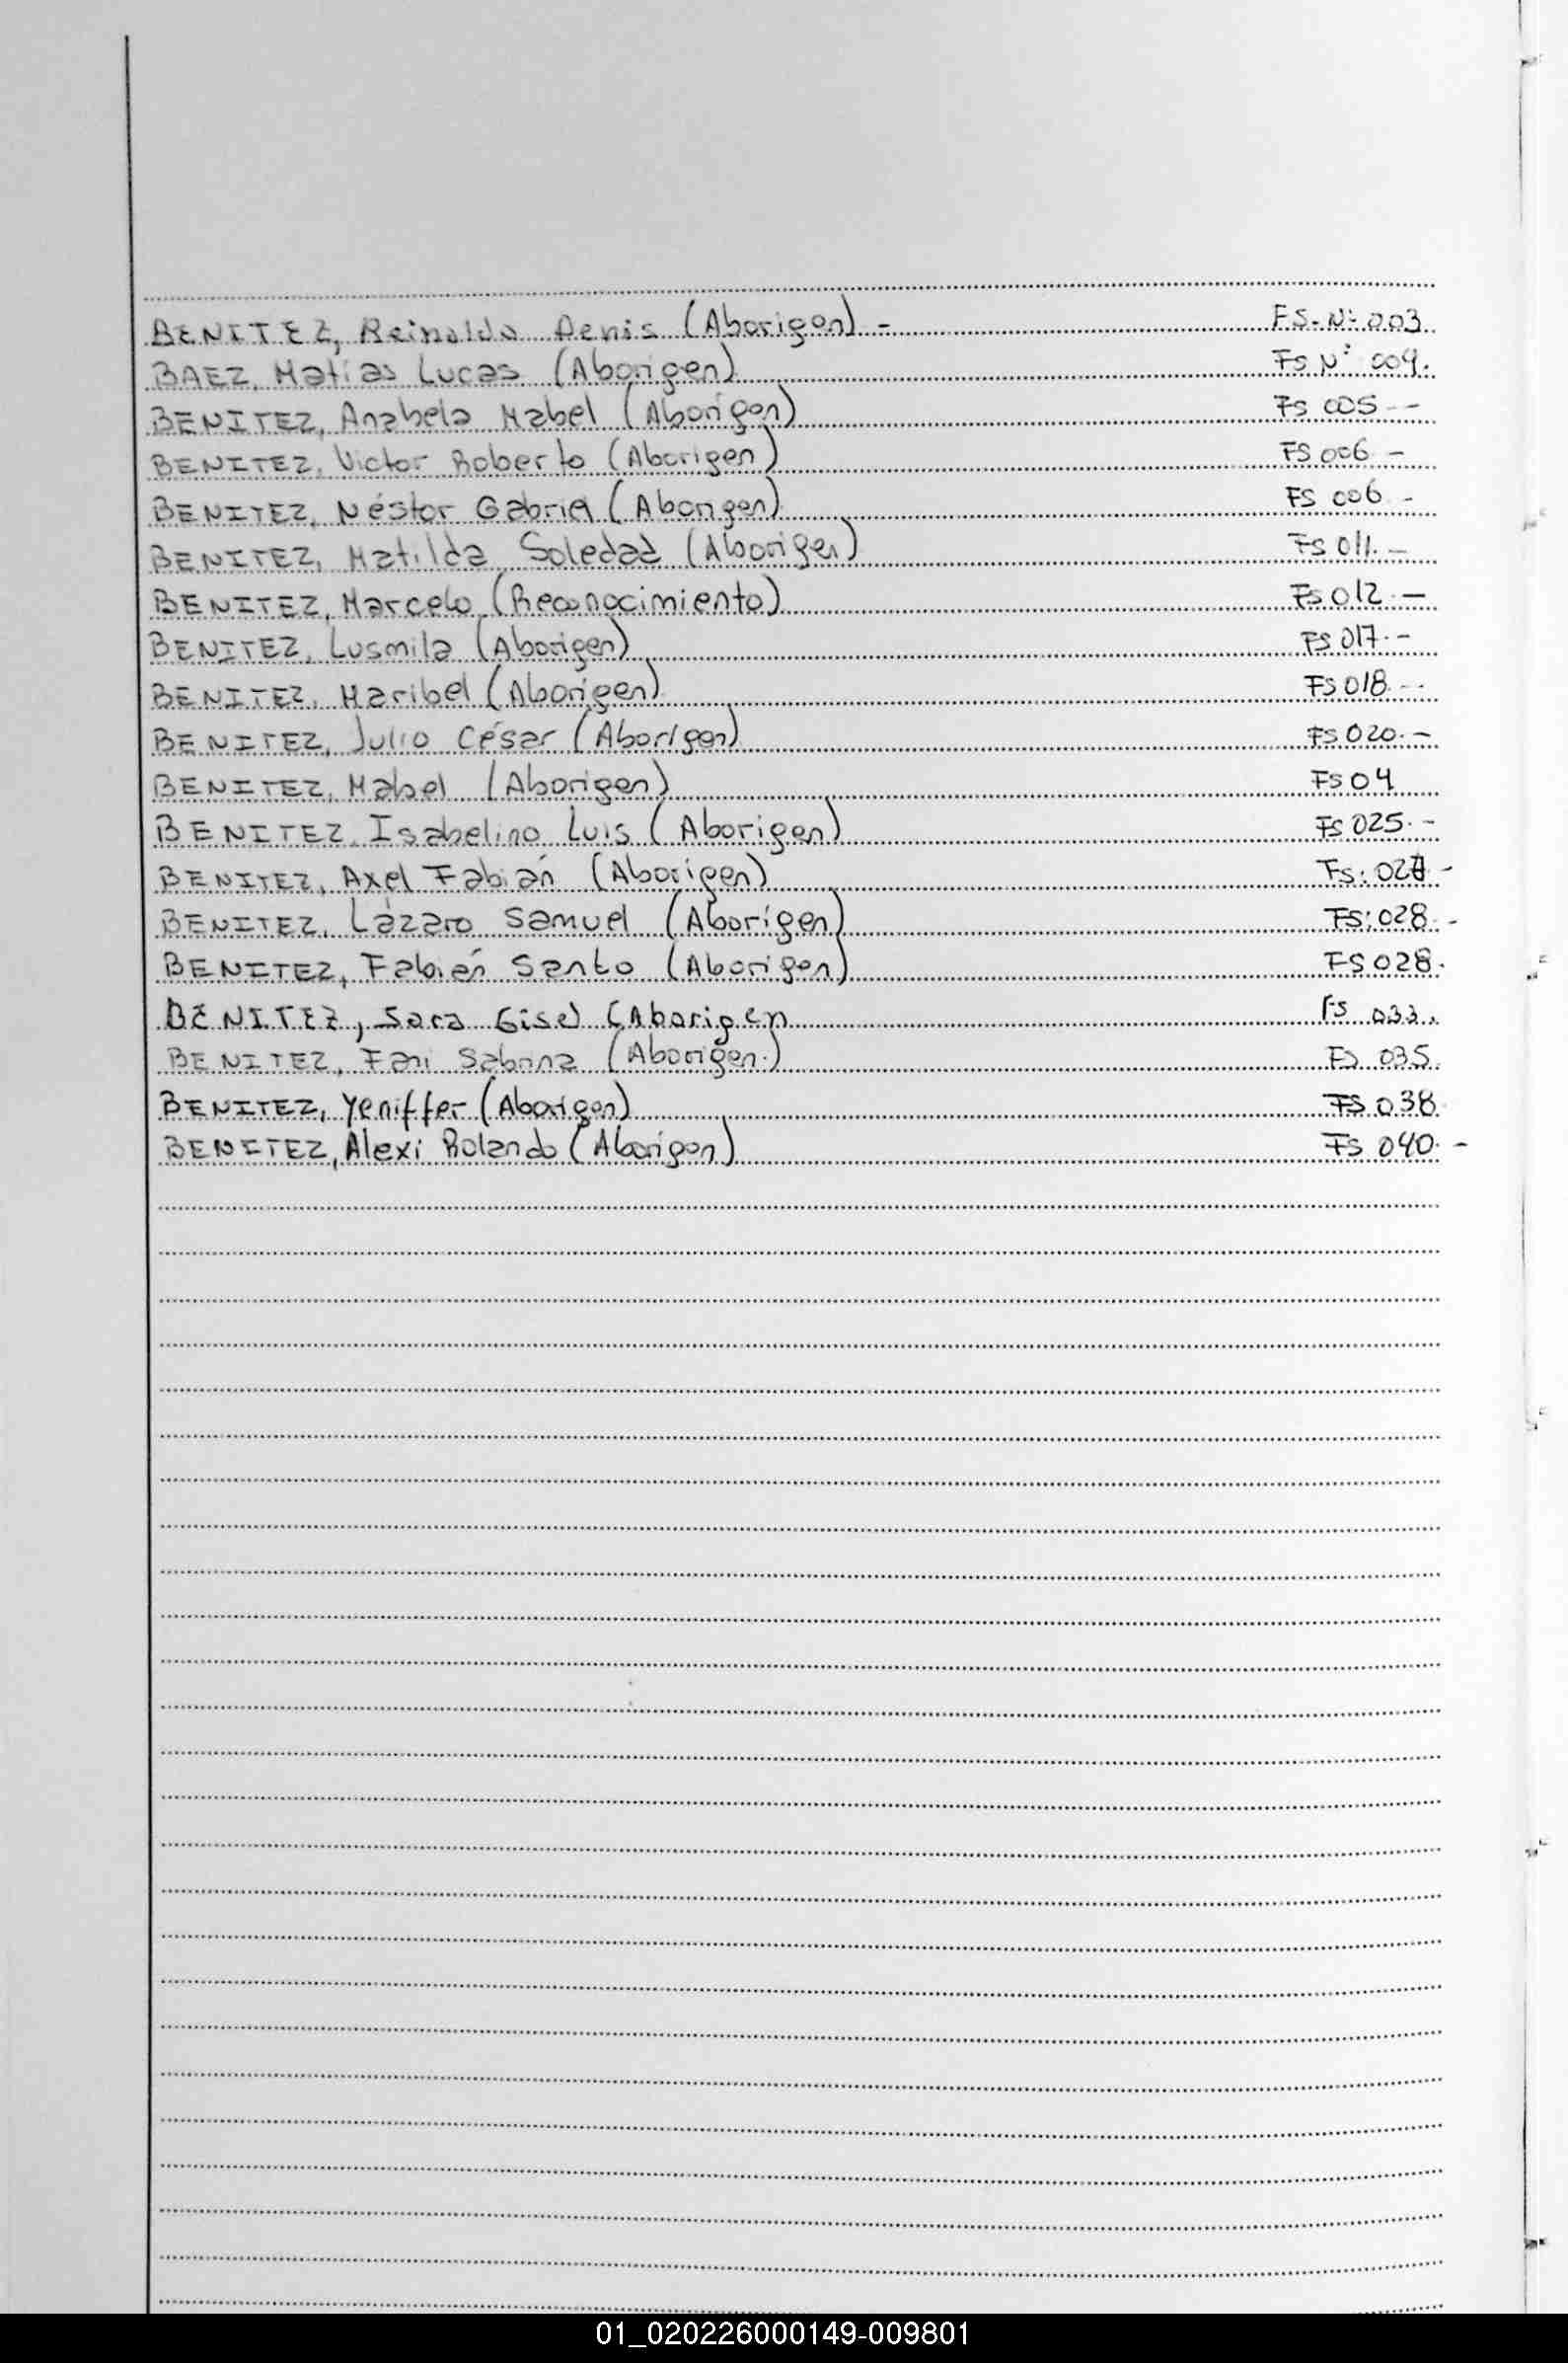 BENITEZ, Reinaldo Denis (Aborigen) - FS-Nº 003
BAEZ, Matías Lucas (Aborigen) FS Nº 004.
BENITEZ, Anabela Mabel (Aborigen) FS 005 --
BENITEZ, Victor Roberto (Aborigen) FS 006 -
BENITEZ, Néstor Gabriel (Aborigen) FS 006 -
BENITEZ, Matilda Soledad (Aborigen) FS 011. -
BENITEZ, Marcelo (Reconocimiento) FS 012 -
BENITEZ, Lusmila (Aborigen) FS 017. -
BENITEZ, Maribel (Aborigen) FS 018 --
BENITEZ, Julio César (Aborigen) FS 020. -
BENITEZ, Mabel (Aborigen) FS 04
BENITEZ, Isabelino Luis (Aborigen) FS 025. -
BENITEZ, Axel Fabián (Aborigen) Fs: -
BENITEZ, Lázaro Samuel (Aborígen) FS: 028 -
BENITEZ, Fabián Santo (Aborigen) FS 028.
BENITEZ, Sara Gisel (Aborigen FS 033.
BENITEZ, Fani Sabrina (Aborigen.) FS 035.
BENITEZ, Yeniffer (Aborigen) FS 038
BENITEZ, Alexi Rolando (Aborigen) FS 040. -
01_020226000149-009801